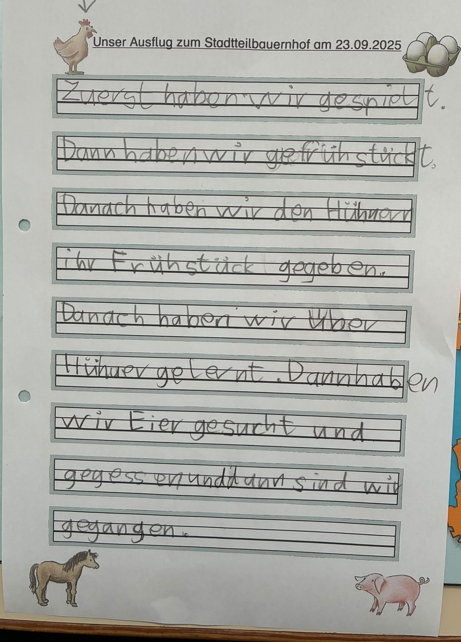 Unser Ausflug zum Stadtteilbauernhof am 23.09.2025
Zuerst haben wir gespielt.
Dann haben wir gefrühstückt.
Danach haben wir den Hühnern
ihr Frühstück gegeben.
Danach haben wir Über
Hühner gelernt. Dann haben
wir Eier gesucht und
gegessen und dann sind wir
gegangen.